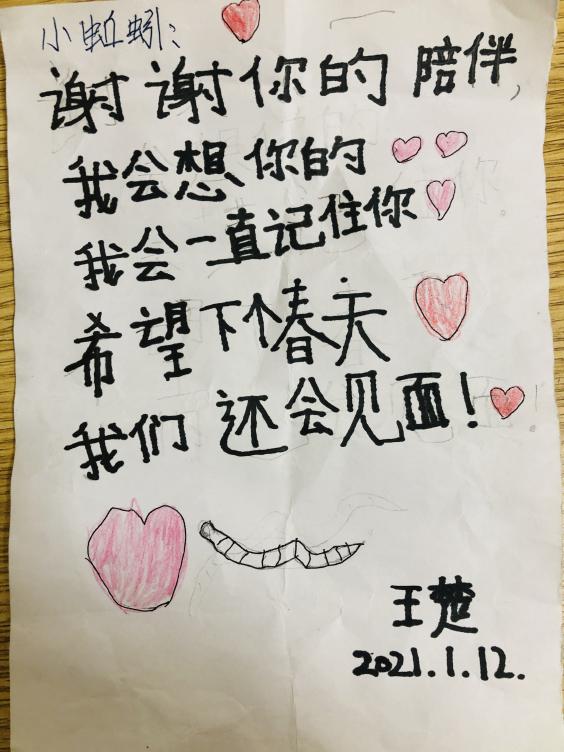 小蚯蚓：
谢谢你的陪伴，
我会想你的
我会一直记住你
希望下个春天
我们还会见面！
王楚
2021.1.12.